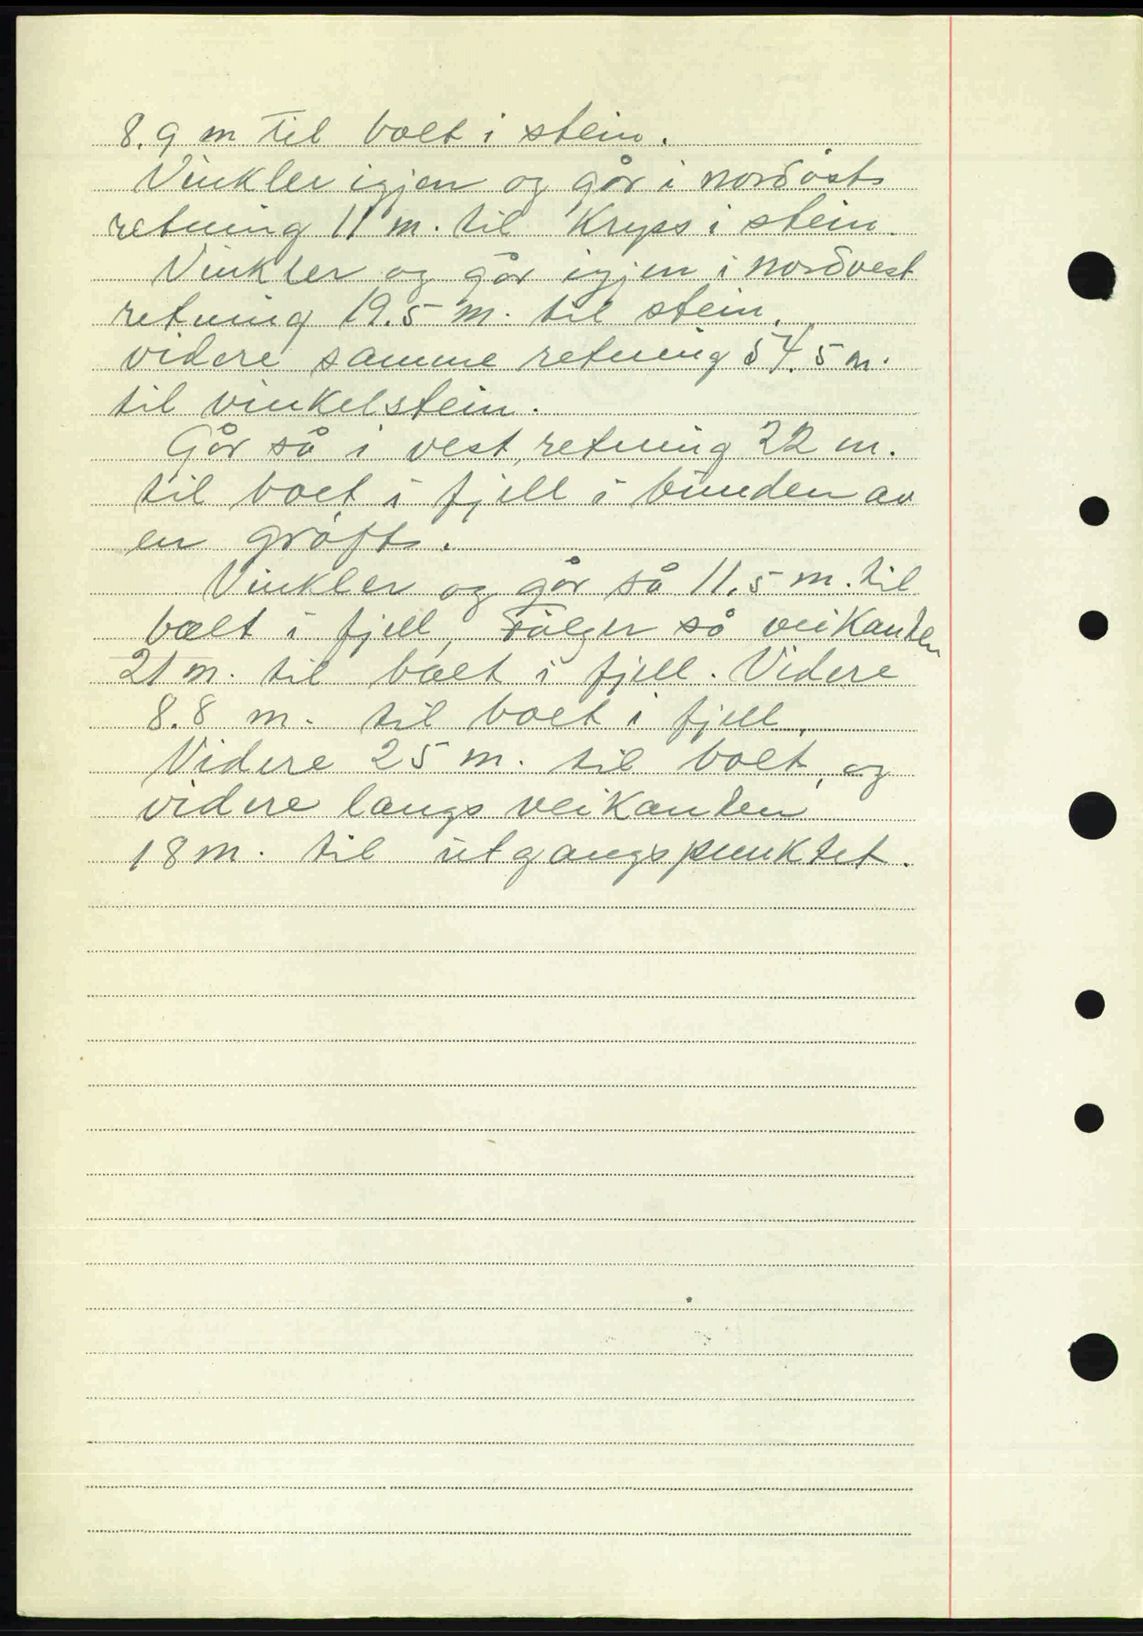 8.9 m til bolt i stein.
Vinkler igjen og går i nordøst
retning 11 m. til Kryss i stein.
Vinkler og går igjen i nordvest
retning 19.5 m. til stein.
videre samme retning 54.5 m.
til vinkelstein.
Går så i vest retning 22 m.
til bolt i fjell i bunden av
en grøft.
Vinkler og går så 11.5 m. til
bolt i fjell, Følger så veikanten
21 m. til bolt i fjell. Videre
8.8 m. til bolt i fjell.
Videre 25 m. til bolt, og
videre langs veikanten
18 m. til utgangspunktet.